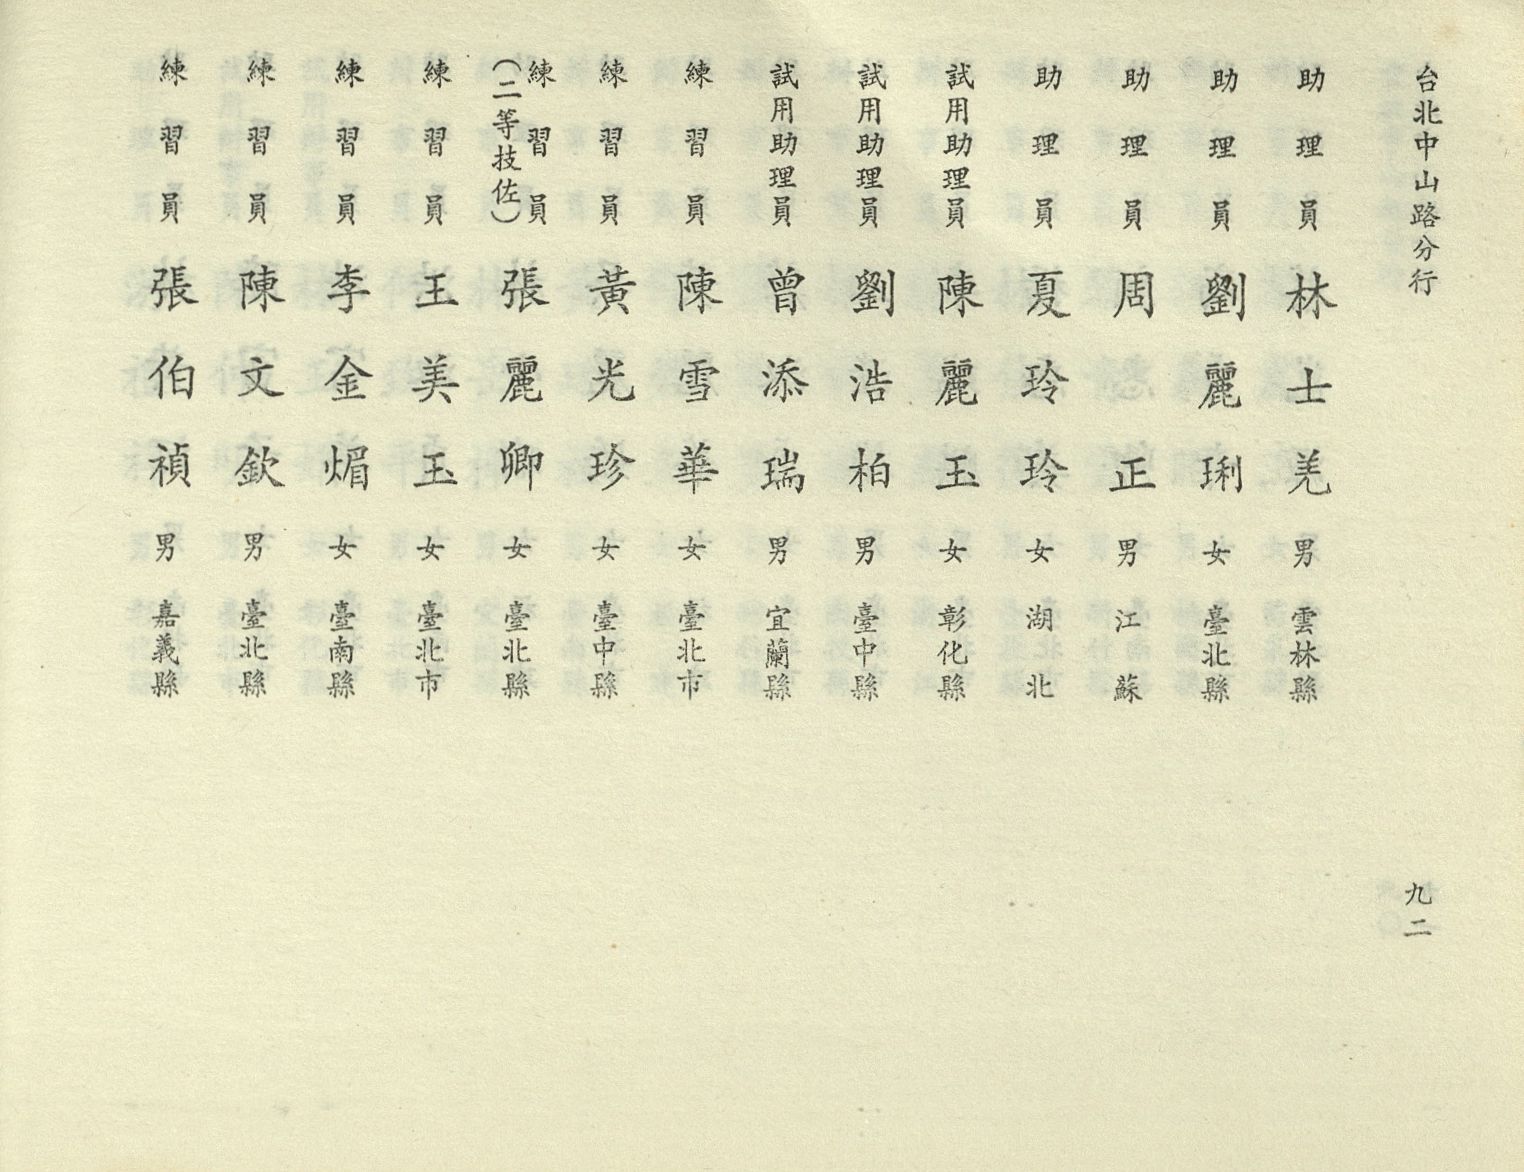 台北中山路分行
九二
助理員 林士羌 男 雲林縣
助理員 劉麗琍 女 臺北縣
助理員 周正 男 江蘇
助理員 夏玲玲 女 湖北
試用助理員 陳麗玉 女 彰化縣
試用助理員 劉浩柏 男 臺中縣
試用助理員 曾添瑞 男 宜蘭縣
練習員 陳雪華 女 臺北市
練習員 黃光珍 女 臺中縣
練習員(二等技佐) 張麗卿 女 臺北縣
練習員 王美玉 女 臺北市
練習員 李金煝 女 臺南縣
練習員 陳文欽 男 臺北縣
練習員 張伯禎 男 嘉義縣